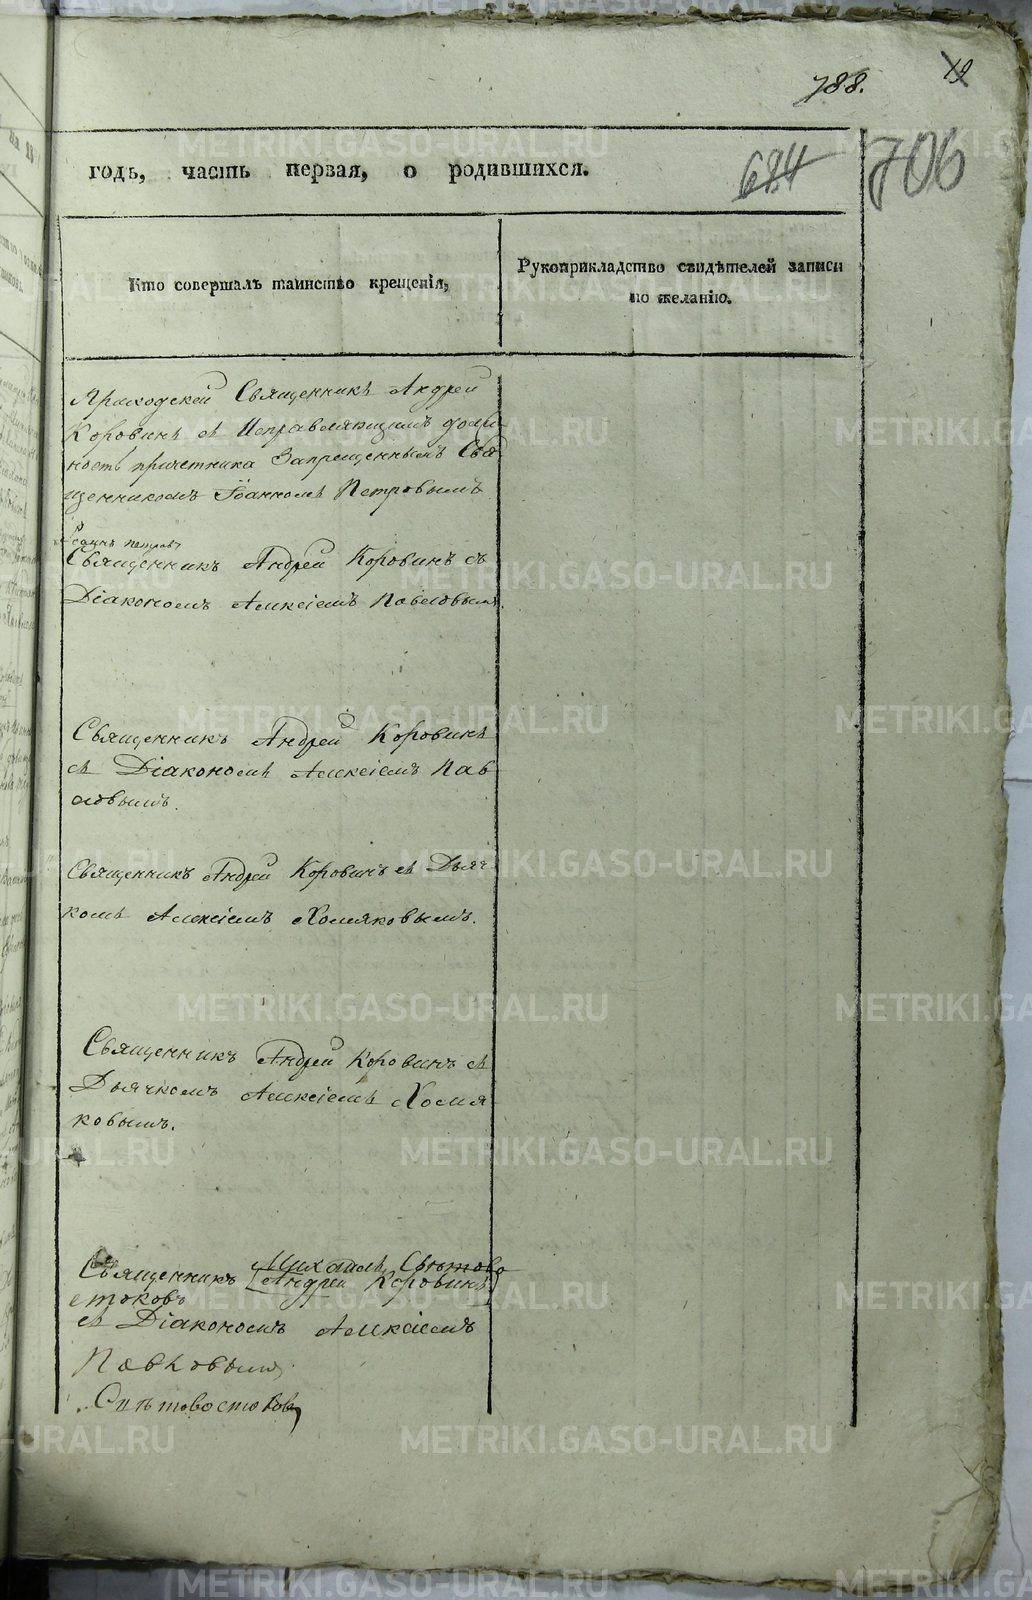 788.
19
684
706
годъ, часть первая, о родившихся.
Кто совершалъ таинство крещенія,
Рукоприкладство свидѣтелей записи
по желанію.
Приходскей Священникъ Андрей
Коровинъ съ Исправляющимъ долж
ность причетника Запрещеннымъ Свя
щенникомъ Іоанномъ Петровымъ
Священникъ Андрей Коровинъ съ
Діакономъ Алексіемъ Павловымъ.
Священникъ Андрей Коровинъ
съ Діакономъ Алексіемъ Пав
ловымъ.
Священникъ Андрей Коровинъ съ Дьяч
комъ Алексіемъ Хомяковымъ.
Священникъ Андрей Коровинъ съ
Дьячкомъ Алексіемъ Хомя
ковымъ.
Михаилъ Свѣтово
Священникъ [Андрей Коровинъ]
стоковъ
съ Діакономъ Алексіемъ
Павловымъ
Свѣтовостоковъ
METRIKI.GASO-URAL.RU